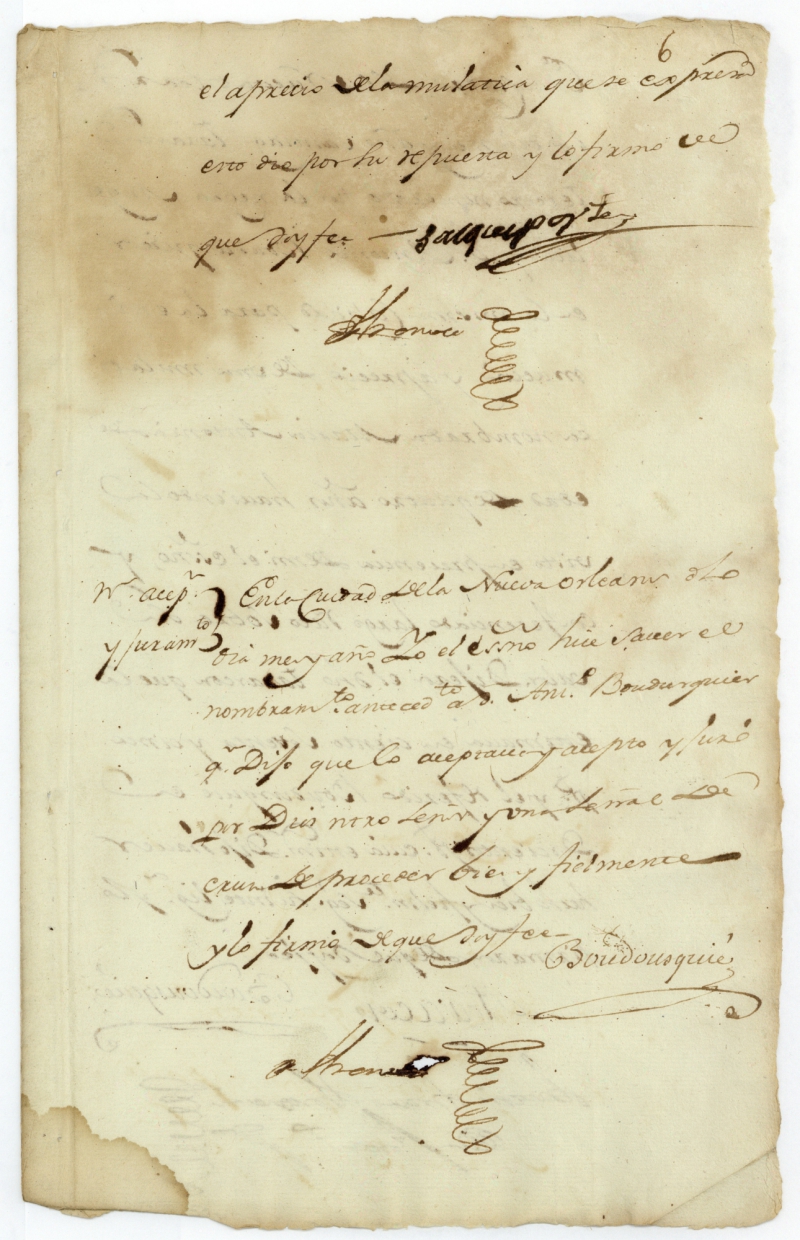 6
el aprecio de la mulatica que se expresa
esto dio por su repuesta y lo firmo de
que doy fee — Jacques porte
en la Ciudad de la Nueva orleans dho
N.n acep.n
y juram.to
dia mes y año Yo el essño hice saver el
nombram.to anteced.te a D. Ant.o Boudusquier
q.n Dijo que lo aceptava y acepto y juró
por Dios ntro señor y una señal de
cruz de proceder bien y fielmente
y lo firmó de que doy fee—
Boudousquié